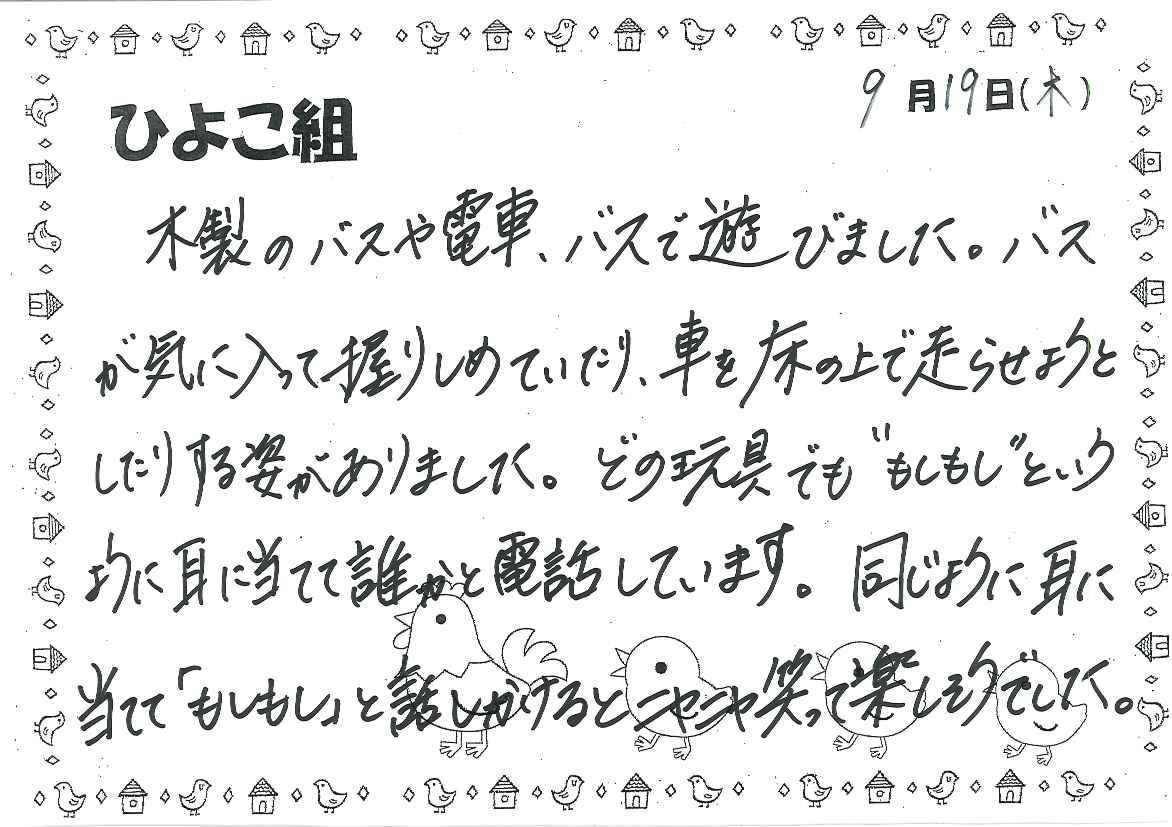 9月19日(木)
ひよこ組
木製のバスや電車、バスで遊びました。バス
が気に入って握りしめていたり、車を床の上で走らせようと
したりする姿がありました。どの玩具でも“もしもし”という
ように耳に当てて誰かと電話しています。同じように耳に
当てて「もしもし」と話しかけるとニヤニヤ笑って楽しそうでした。